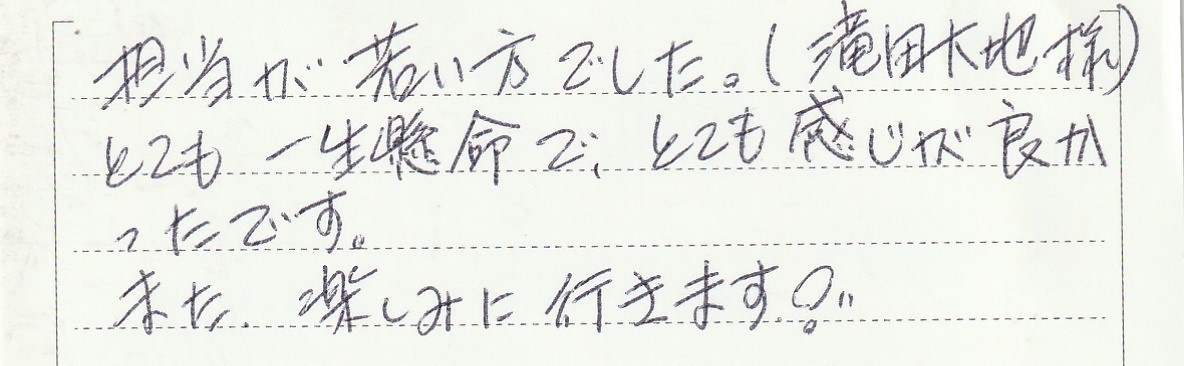 担当が若い方でした。(滝田大地様)
とても一生懸命で、とても感じが良か
ったです。
また、楽しみに行きます!!